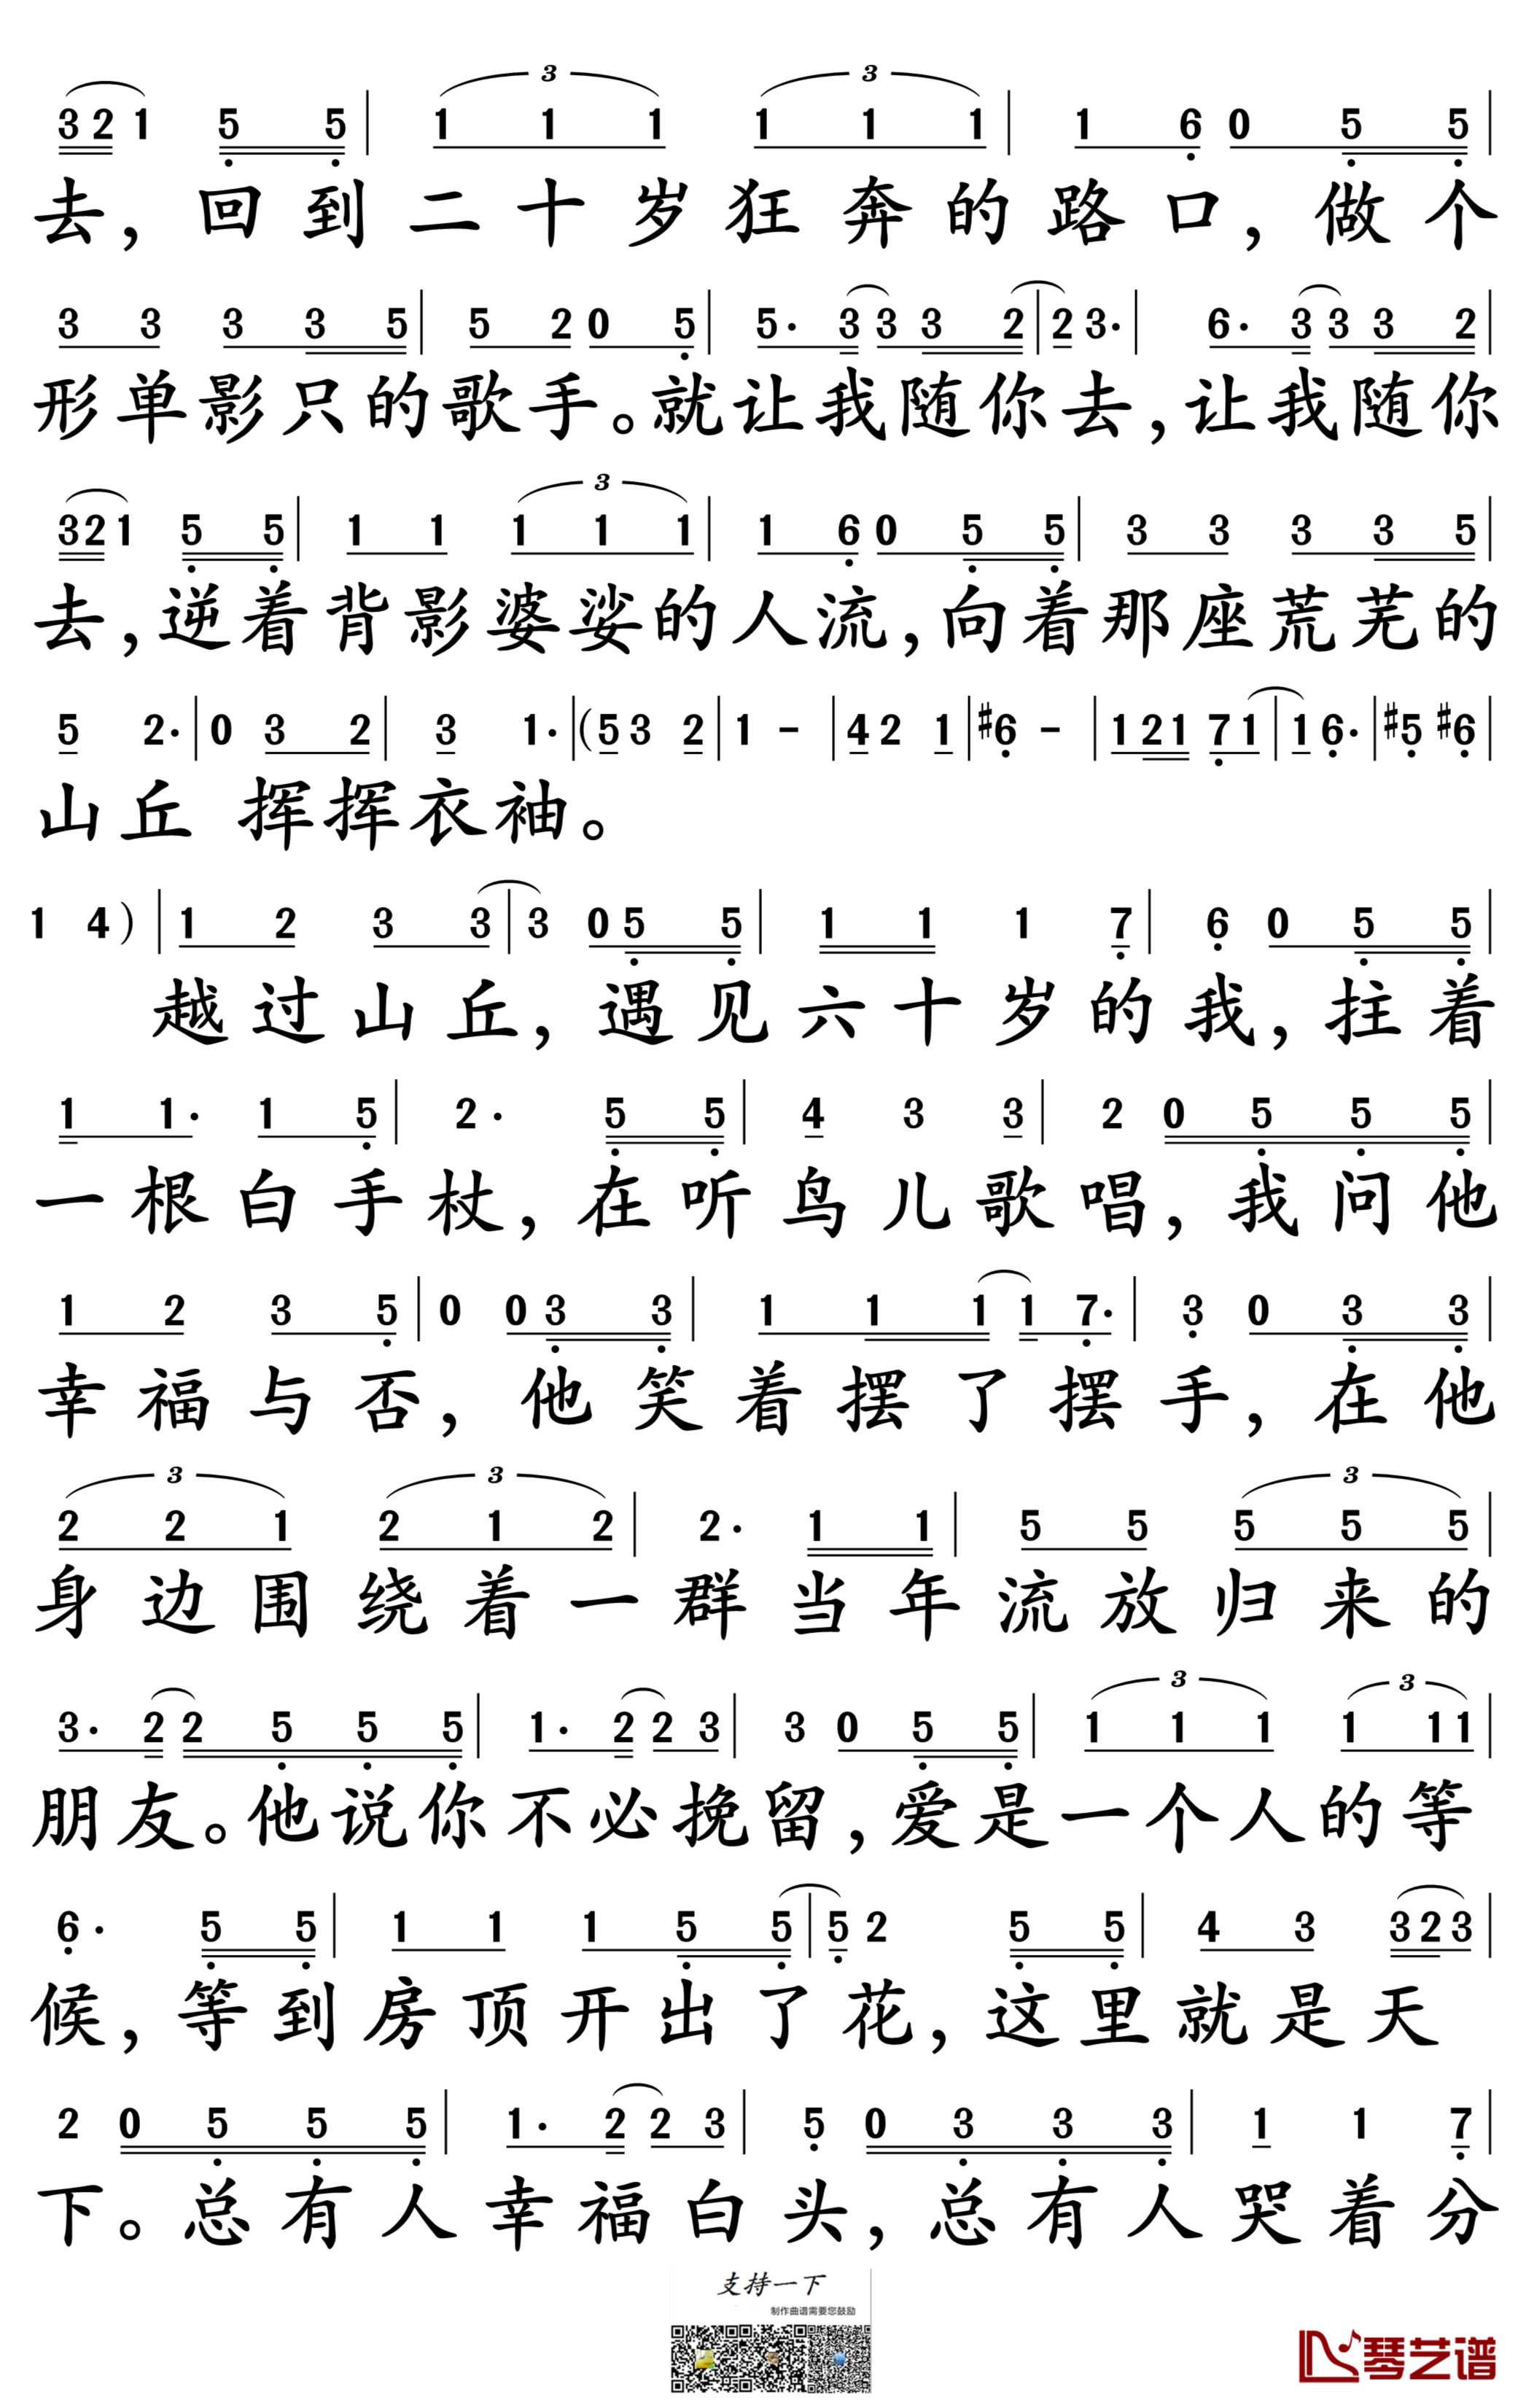 3
3
321 5 5 | 1 1 1 1 1 1 | 1 6 0 5 5 |
去，回到二十岁狂奔的路口，做个
3 3 3 3 5 | 5 2 0 5 | 5· 3 3 3 2 | 2 3· | 6· 3 3 3 2 |
形单影只的歌手。就让我随你去，让我随你
3
321 5 5 | 1 1 1 1 1 | 1 6 0 5 5 | 3 3 3 3 5 |
去，逆着背影婆娑的人流，向着那座荒芜的
5 2· | 0 3 2 | 3 1· | (5 3 2 | 1 - | 4 2 1 | #6 - | 121 71 | 1 6· | #5 #6 |
山丘 挥挥衣袖。
1 4) | 1 2 3 3 | 3 0 5 5 | 1 1 1 7 | 6 0 5 5 |
越过山丘，遇见六十岁的我，拄着
1 1· 1 5 | 2· 5 5 | 4 3 3 | 2 0 5 5 5 |
一根白手杖，在听鸟儿歌唱，我问他
1 2 3 5 | 0 0 3 3 | 1 1 1 1 7· | 3 0 3 3 |
幸福与否，他笑着摆了摆手，在他
3 3 3
2 2 1 2 1 2 | 2· 1 1 | 5 5 5 5 5 |
身边围绕着一群当年流放归来的
3 3
3· 2 2 5 5 5 | 1· 2 2 3 | 3 0 5 5 | 1 1 1 1 11 |
朋友。他说你不必挽留，爱是一个人的等
6· 5 5 | 1 1 1 5 5 | 5 2 5 5 | 4 3 323 |
候，等到房顶开出了花，这里就是天
2 0 5 5 5 | 1· 2 2 3 | 5 0 3 3 3 | 1 1 7 |
下。总有人幸福白头，总有人哭着分
支持一下
制作曲谱需要您鼓励
琴艺谱